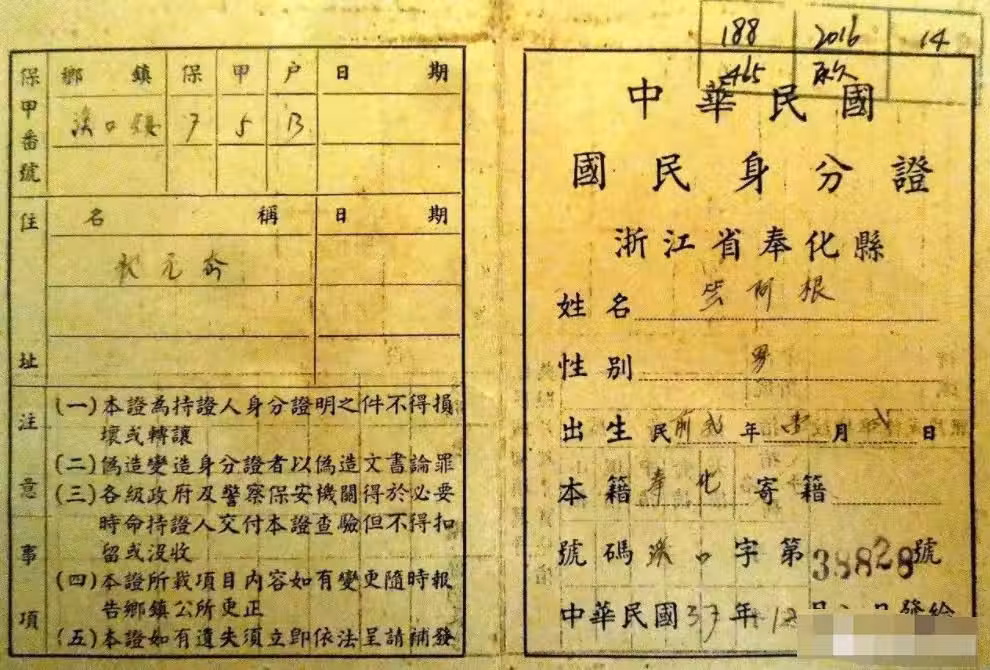 188 2016 14
465 永久
中華民國
國民身分證
浙江省奉化縣
姓名 阿根
性別 男
出生 民前 年 月 日
本籍 奉化 寄籍
號碼 溪口字第38828號
中華民國37年12月 日發給
保甲番號 鄉鎮 保 甲 户 日期
溪口鎮 7 5 13
住址 名稱 日期
狀元
注意事項
(一)本證為持證人身分證明之件不得損
壞或轉讓
(二)偽造變造身分證者以偽造文書論罪
(三)各級政府及警察保安機關得於必要
時命持證人交付本證查驗但不得扣
留或沒收
(四)本證所載項目內容如有變更隨時報
告鄉鎮公所更正
(五)本證如有遺失須立即依法呈請補發